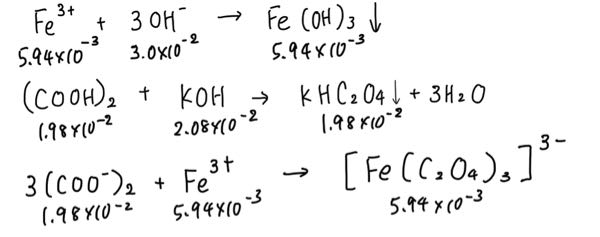 Fe³⁺ + 3 OH⁻ → Fe(OH)₃ ↓
5.94×10⁻³ 3.0×10⁻² 5.94×10⁻³
(COOH)₂ + KOH → KHC₂O₄↓ + 3H₂O
1.98×10⁻² 2.08×10⁻² 1.98×10⁻²
3(COO⁻)₂ + Fe³⁺ → [Fe(C₂O₄)₃]³⁻
1.98×10⁻² 5.94×10⁻³ 5.94×10⁻³